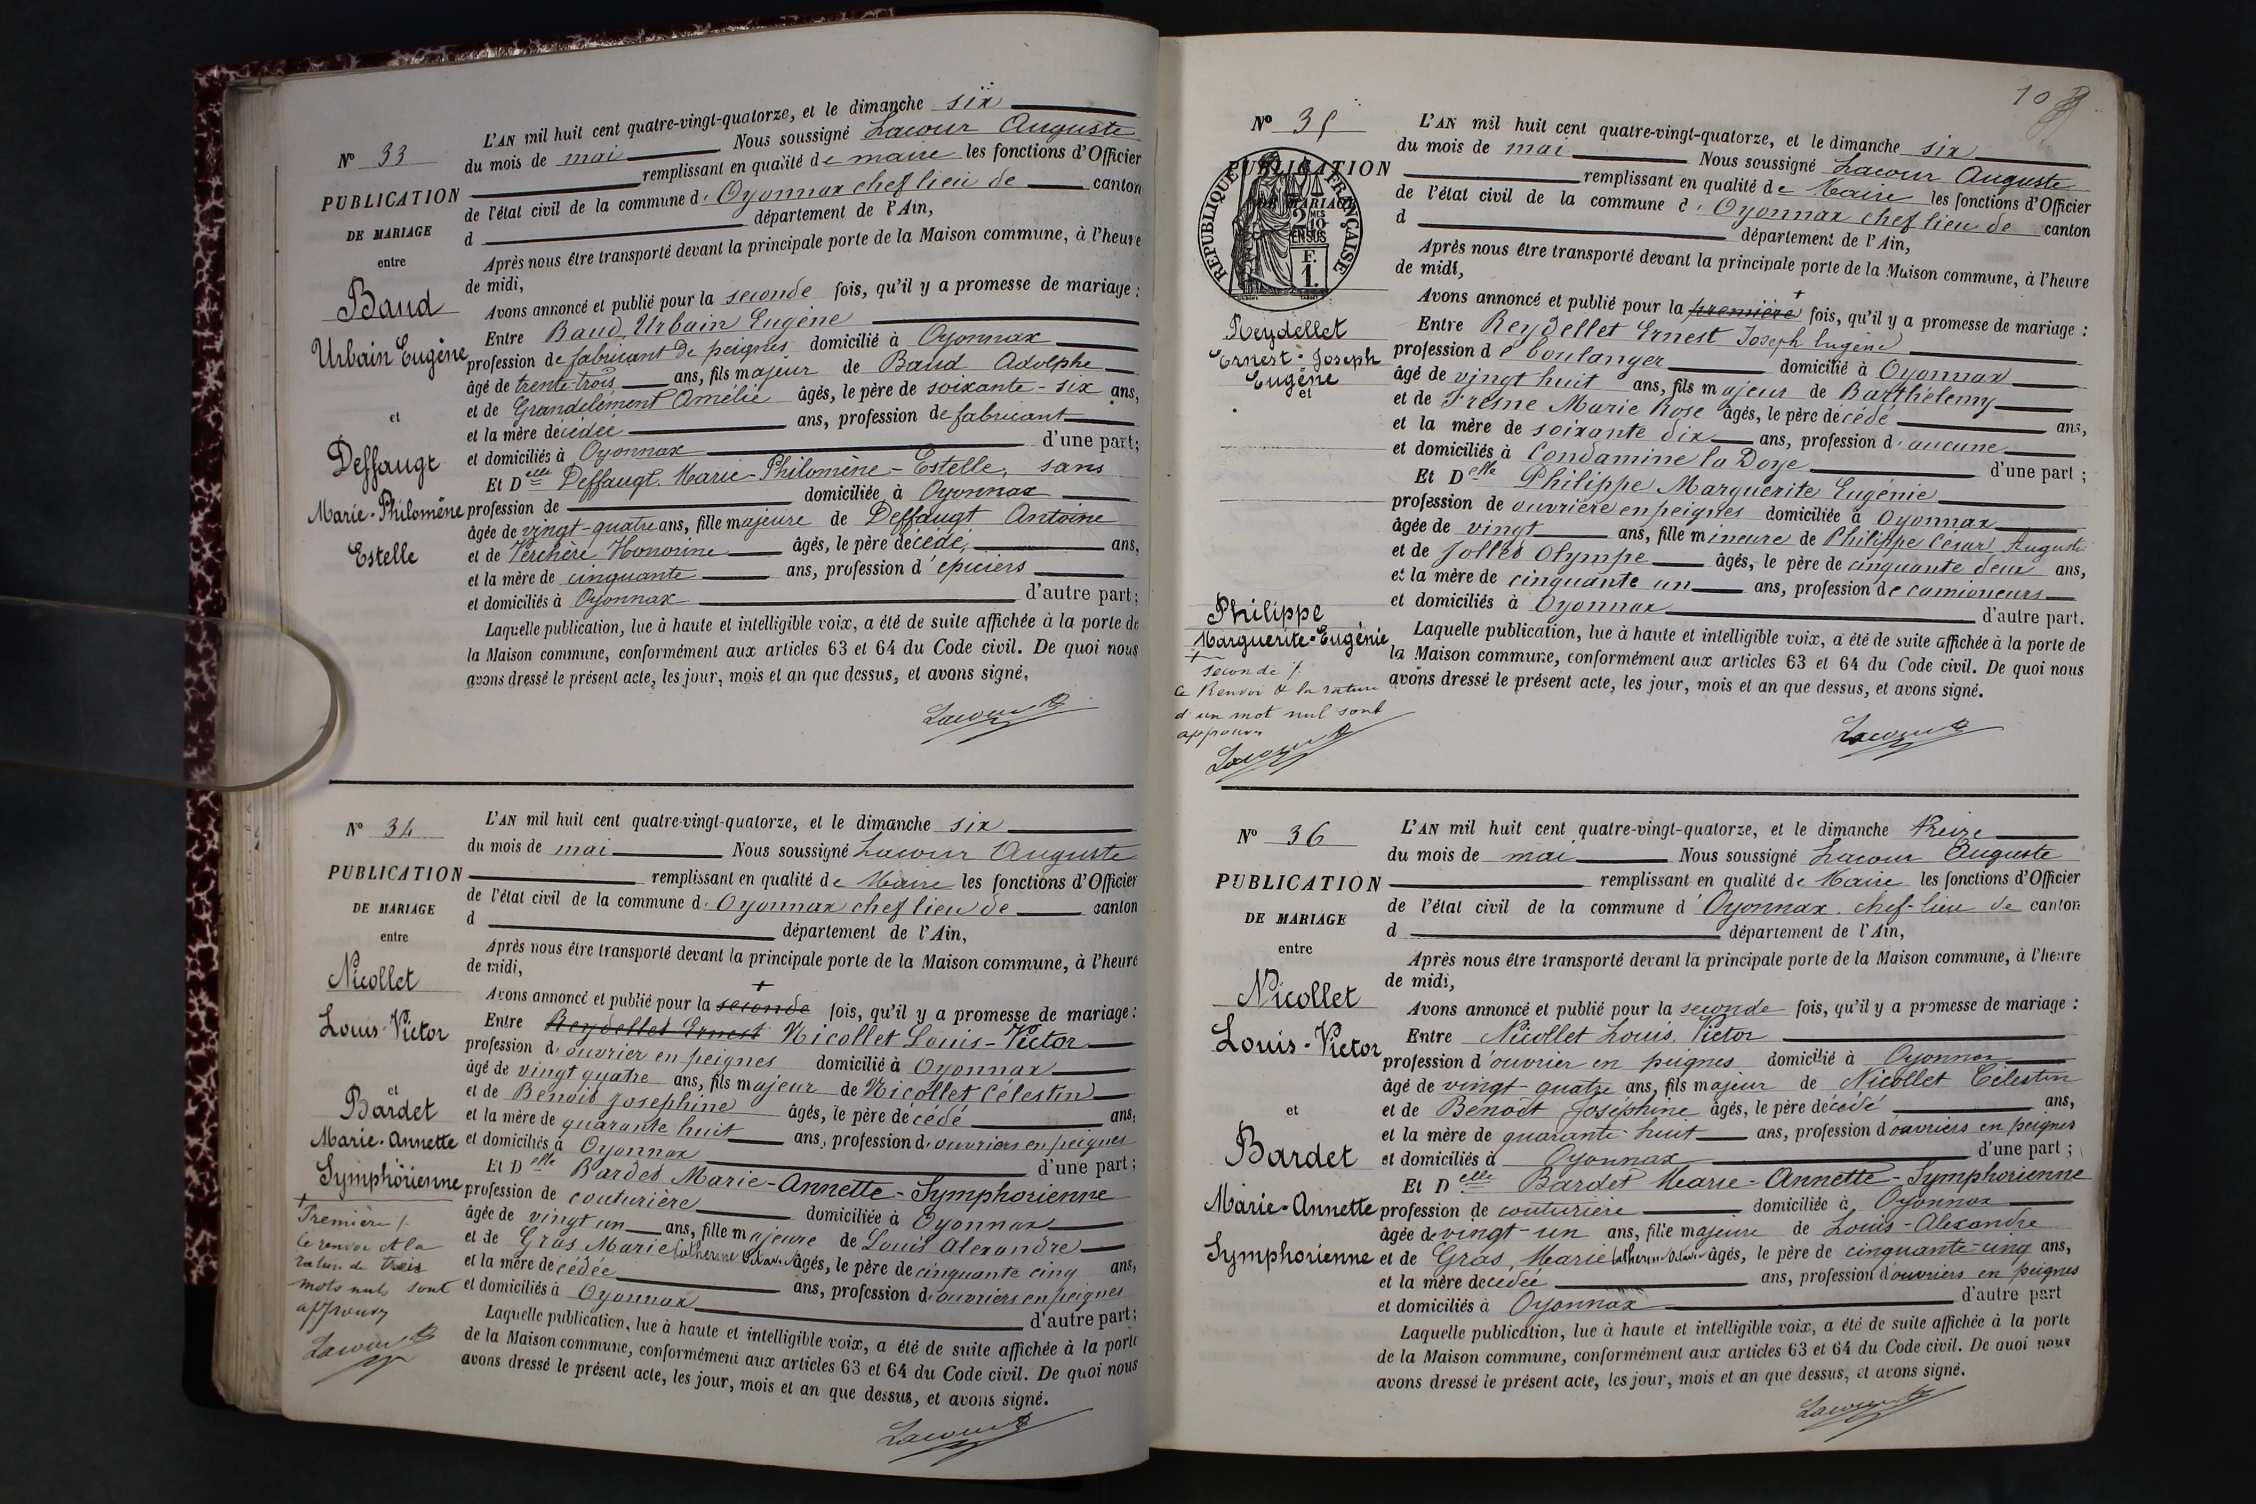 N° 33
PUBLICATION
DE MARIAGE
entre
Baud
Urbain Eugène
et
Deffaugt
Marie-Philomène
Estelle
L'AN mil huit cent quatre-vingt-quatorze, et le dimanche six
du mois de mai Nous soussigné Lacour Auguste
remplissant en qualité de maire les fonctions d'Officier
de l'état civil de la commune d' Oyonnax chef lieu de canton
d département de l'Ain,
Après nous être transporté devant la principale porte de la Maison commune, à l'heure
de midi,
Avons annoncé et publié pour la seconde fois, qu'il y a promesse de mariage :
Entre Baud Urbain Eugène
profession de fabricant de peignes domicilié à Oyonnax
âgé de trente-trois ans, fils majeur de Baud Adolphe
et de Grandclément Amélie âgés, le père de soixante-six ans,
et la mère décédée ans, profession de fabricant
et domiciliés à Oyonnax d'une part;
Et Delle Deffaugt Marie-Philomène-Estelle, sans
profession de domiciliée à Oyonnax
âgée de vingt-quatre ans, fille majeure de Deffaugt Antoine
et de Verchère Honorine âgés, le père décédé, ans,
et la mère de cinquante ans, profession d'épiciers
et domiciliés à Oyonnax d'autre part;
Laquelle publication, lue à haute et intelligible voix, a été de suite affichée à la porte de
la Maison commune, conformément aux articles 63 et 64 du Code civil. De quoi nous
avons dressé le présent acte, les jour, mois et an que dessus, et avons signé.
Lacour
N° 34
PUBLICATION
DE MARIAGE
entre
Nicollet
Louis-Victor
et
Bardet
Marie-Annette
Symphorienne
+
Première /.
Ce renvoi et la
rature de trois
mots nuls sont
approuvés
Lacour
L'AN mil huit cent quatre-vingt-quatorze, et le dimanche six
du mois de mai Nous soussigné Lacour Auguste
remplissant en qualité de Maire les fonctions d'Officier
de l'état civil de la commune d' Oyonnax chef lieu de canton
d département de l'Ain,
Après nous être transporté devant la principale porte de la Maison commune, à l'heure
de midi,
+
Avons annoncé et publié pour la seconde fois, qu'il y a promesse de mariage :
Entre Reydellet Ernest Nicollet Louis-Victor
profession d'ouvrier en peignes domicilié à Oyonnax
âgé de vingt quatre ans, fils majeur de Nicollet Célestin
et de Benoit Joséphine âgés, le père décédé ans,
et la mère de quarante huit ans, profession d'ouvriers en peignes
et domiciliés à Oyonnax d'une part;
Et Delle Bardet Marie-Annette-Symphorienne
profession de couturière domiciliée à Oyonnax
âgée de vingt un ans, fille majeure de Louis Alexandre
et de Gras Marie Catherine Octavie âgés, le père de cinquante cinq ans,
et la mère décédée ans, profession d'ouvriers en peignes
et domiciliés à Oyonnax d'autre part;
Laquelle publication, lue à haute et intelligible voix, a été de suite affichée à la porte
de la Maison commune, conformément aux articles 63 et 64 du Code civil. De quoi nous
avons dressé le présent acte, les jour, mois et an que dessus, et avons signé.
Lacour
10
N° 35
PUBLICATION
DE MARIAGE
RÉPUBLIQUE FRANÇAISE
2 MES 10 EN SUS
F. 1.
Reydellet
Ernest-Joseph
Eugène
et
Philippe
Marguerite-Eugénie
+
seconde /.
Ce Renvoi & la rature
d'un mot nul sont
approuvés
Lacour
L'AN mil huit cent quatre-vingt-quatorze, et le dimanche six
du mois de mai Nous soussigné Lacour Auguste
remplissant en qualité de Maire les fonctions d'Officier
de l'état civil de la commune d' Oyonnax chef lieu de canton
d département de l'Ain,
Après nous être transporté devant la principale porte de la Maison commune, à l'heure
de midi,
+
Avons annoncé et publié pour la première fois, qu'il y a promesse de mariage :
Entre Reydellet Ernest Joseph Eugène
profession de boulanger domicilié à Oyonnax
âgé de vingt huit ans, fils majeur de Barthélemy
et de Fresne Marie Rose âgés, le père décédé ans,
et la mère de soixante dix ans, profession d'aucune
et domiciliés à Condamine la Doye d'une part ;
Et Delle Philippe Marguerite Eugénie
profession de ouvrière en peignes domiciliée à Oyonnax
âgée de vingt ans, fille mineure de Philippe César Auguste
et de Jollet Olympe âgés, le père de cinquante deux ans,
et la mère de cinquante un ans, profession de camioneurs
et domiciliés à Oyonnax d'autre part.
Laquelle publication, lue à haute et intelligible voix, a été de suite affichée à la porte de
la Maison commune, conformément aux articles 63 et 64 du Code civil. De quoi nous
avons dressé le présent acte, les jour, mois et an que dessus, et avons signé.
Lacour
N° 36
PUBLICATION
DE MARIAGE
entre
Nicollet
Louis-Victor
et
Bardet
Marie-Annette
Symphorienne
L'AN mil huit cent quatre-vingt-quatorze, et le dimanche treize
du mois de mai Nous soussigné Lacour Auguste
remplissant en qualité de Maire les fonctions d'Officier
de l'état civil de la commune d' Oyonnax, chef-lieu de canton
d département de l'Ain,
Après nous être transporté devant la principale porte de la Maison commune, à l'heure
de midi,
Avons annoncé et publié pour la seconde fois, qu'il y a promesse de mariage :
Entre Nicollet Louis Victor
profession d'ouvrier en peignes domicilié à Oyonnax
âgé de vingt-quatre ans, fils majeur de Nicollet Célestin
et de Benoît Joséphine âgés, le père décédé ans,
et la mère de quarante-huit ans, profession d'ouvriers en peignes
et domiciliés à Oyonnax d'une part ;
Et Delle Bardet Marie-Annette-Symphorienne
profession de couturière domiciliée à Oyonnax
âgée de vingt-un ans, fille majeure de Louis-Alexandre
et de Gras, Marie Catherine Octavie âgés, le père de cinquante-cinq ans,
et la mère décédée ans, profession d'ouvriers en peignes
et domiciliés à Oyonnax d'autre part
Laquelle publication, lue à haute et intelligible voix, a été de suite affichée à la porte
de la Maison commune, conformément aux articles 63 et 64 du Code civil. De quoi nous
avons dressé le présent acte, les jour, mois et an que dessus, et avons signé.
Lacour